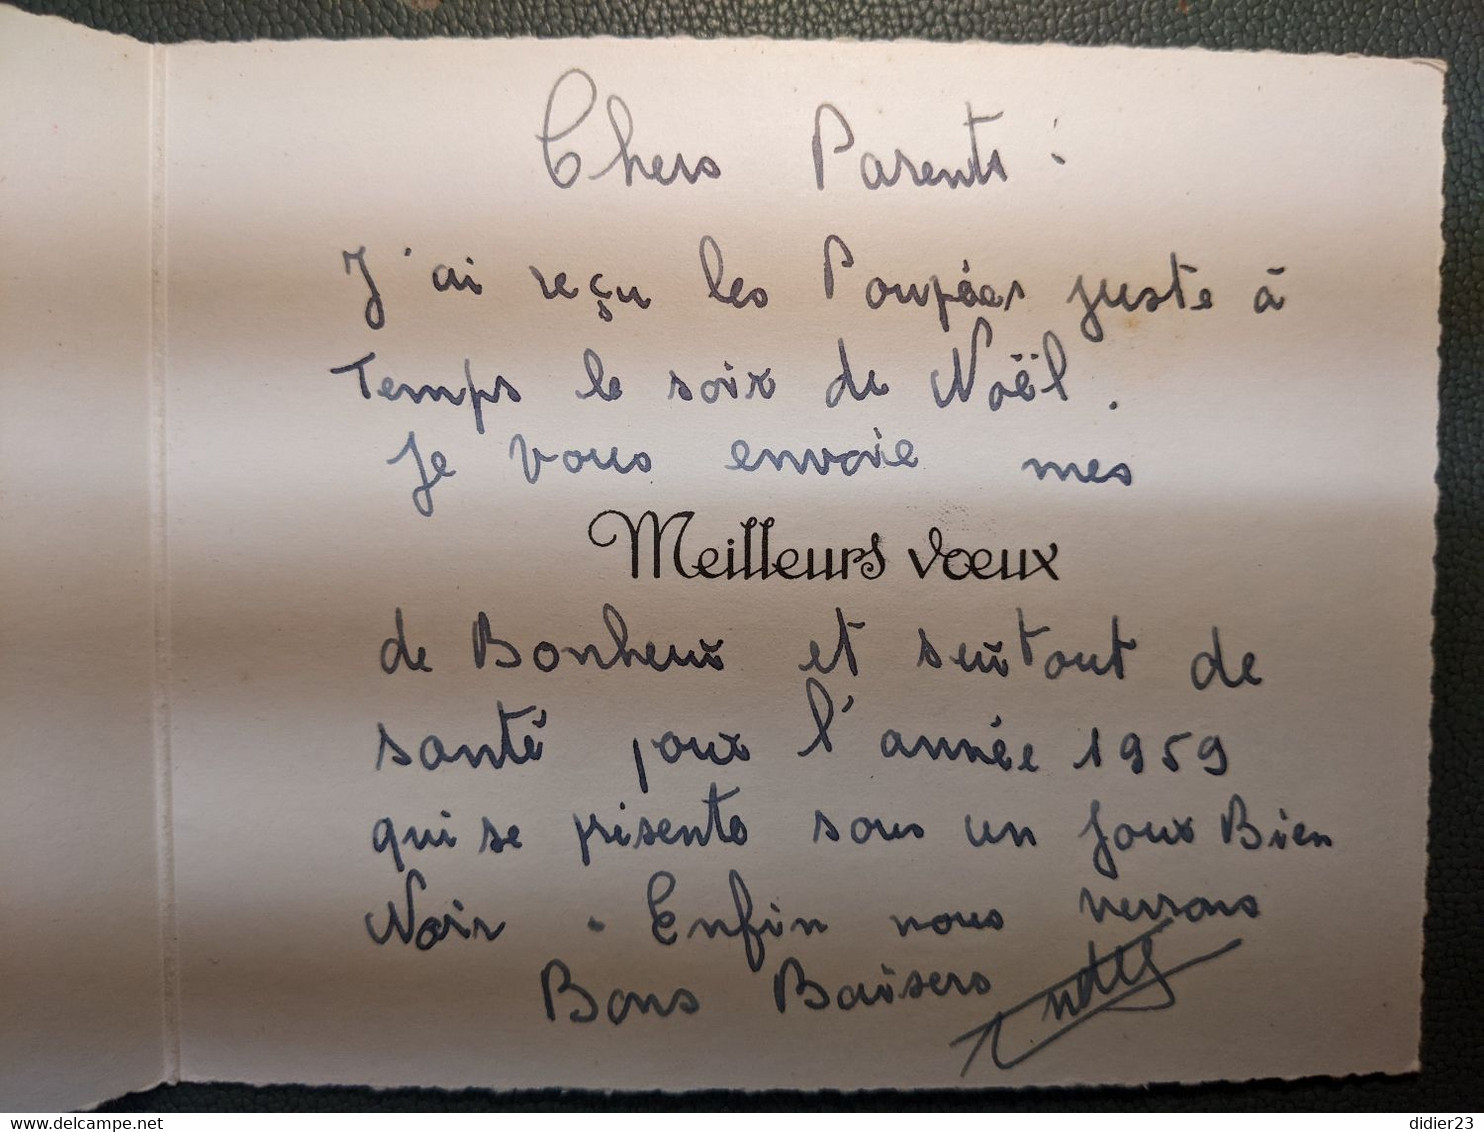 Chers Parents :
J'ai reçu les Poupées juste à
Temps le soir de Noël.
Je vous envoie mes
Meilleurs vœux
de Bonheur et surtout de
santé pour l'année 1959
qui se présente sous un Jour Bien
Noir. Enfin nous verrons
Bons Baisers
delcampe.net
didier23